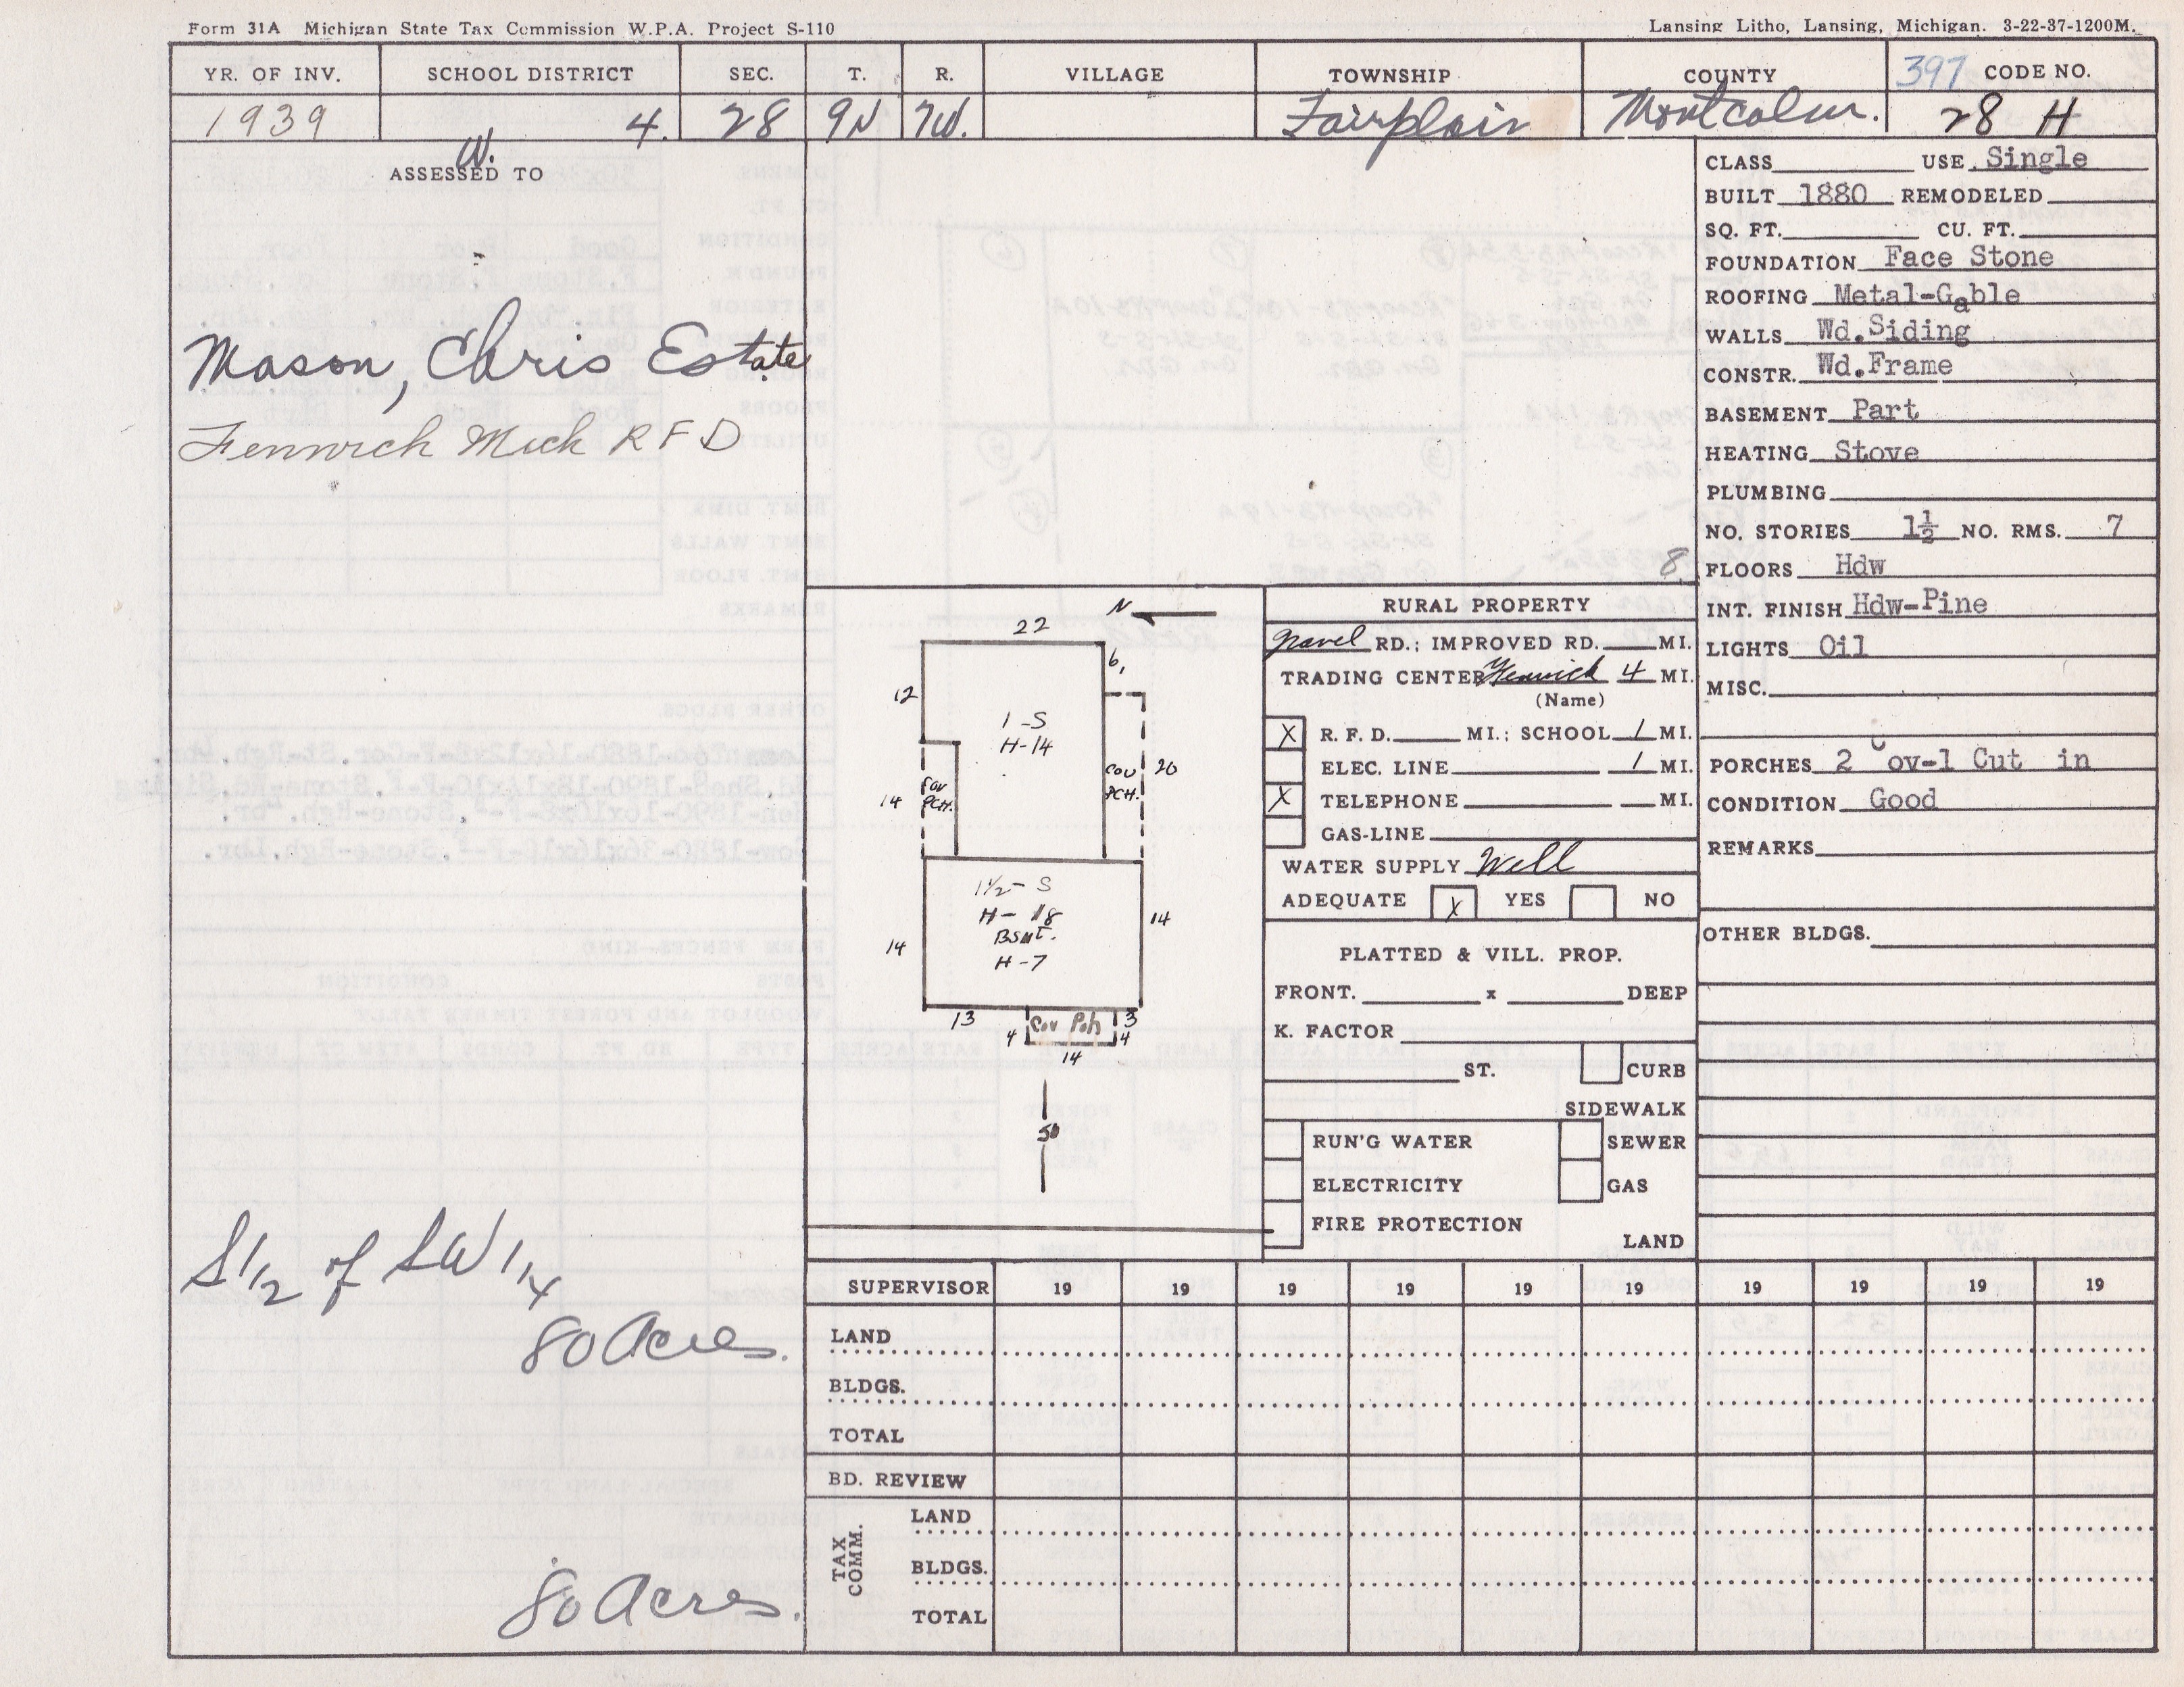 Form 31A Michigan State Tax Commission W.P.A. Project S-110
Lansing Litho, Lansing, Michigan. 3-22-37-1200M.
YR. OF INV. SCHOOL DISTRICT SEC. T. R. VILLAGE TOWNSHIP COUNTY 397 CODE NO.
1939 4. 28 9N 7W. Fairplain Montcalm. 28 H
W.
ASSESSED TO
Mason, Chris Estate
Fenwick Mich R F D
S 1/2 of SW 1/4
80 Acres.
80 Acres.
8
N
22
6,
12
1-S
H-14
COV PCH.
14
COV PCH.
20
1 1/2 - S
H- 18
BSMT.
H-7
14
14
13
3
4
Cov Pch
4
14
50
RURAL PROPERTY
Gravel RD.; IMPROVED RD. MI.
TRADING CENTER Fenwick 4 MI.
(Name)
X R. F. D. MI.; SCHOOL 1 MI.
ELEC. LINE 1 MI.
X TELEPHONE MI.
GAS-LINE
WATER SUPPLY Well
ADEQUATE X YES NO
PLATTED & VILL. PROP.
FRONT. x DEEP
K. FACTOR
ST. CURB
SIDEWALK
RUN'G WATER SEWER
ELECTRICITY GAS
FIRE PROTECTION
LAND
CLASS USE Single
BUILT 1880 REMODELED
SQ. FT. CU. FT.
FOUNDATION Face Stone
ROOFING Metal-Gable
WALLS Wd.Siding
CONSTR. Wd.Frame
BASEMENT Part
HEATING Stove
PLUMBING
NO. STORIES 1½ NO. RMS. 7
FLOORS Hdw
INT. FINISH Hdw-Pine
LIGHTS Oil
MISC.
PORCHES 2 Cov-1 Cut in
CONDITION Good
REMARKS
OTHER BLDGS.
SUPERVISOR 19 19 19 19 19 19 19 19 19 19
LAND
BLDGS.
TOTAL
BD. REVIEW
TAX COMM.
LAND
BLDGS.
TOTAL